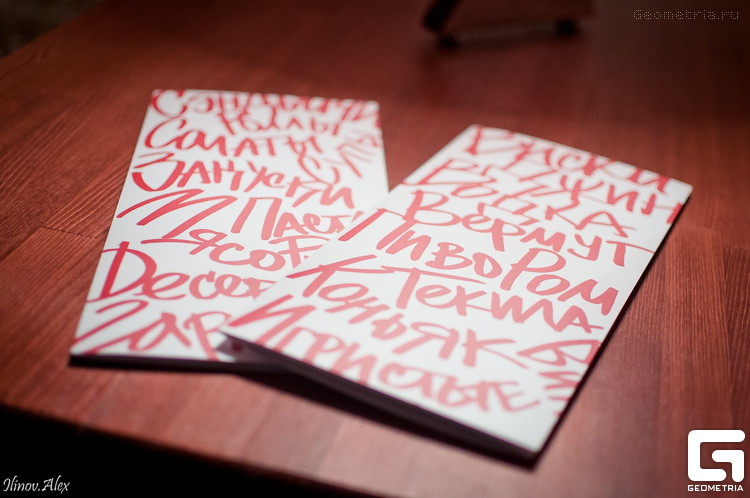 Geometria.ru
Роллы
Салаты
Закуски
Паст
Мясо
Десер
Виски
Джин
Водка
Вермут
Пиво Ром
Текила
Коньяк
Игристые
Ilinov.Alex
GEOMETRIA